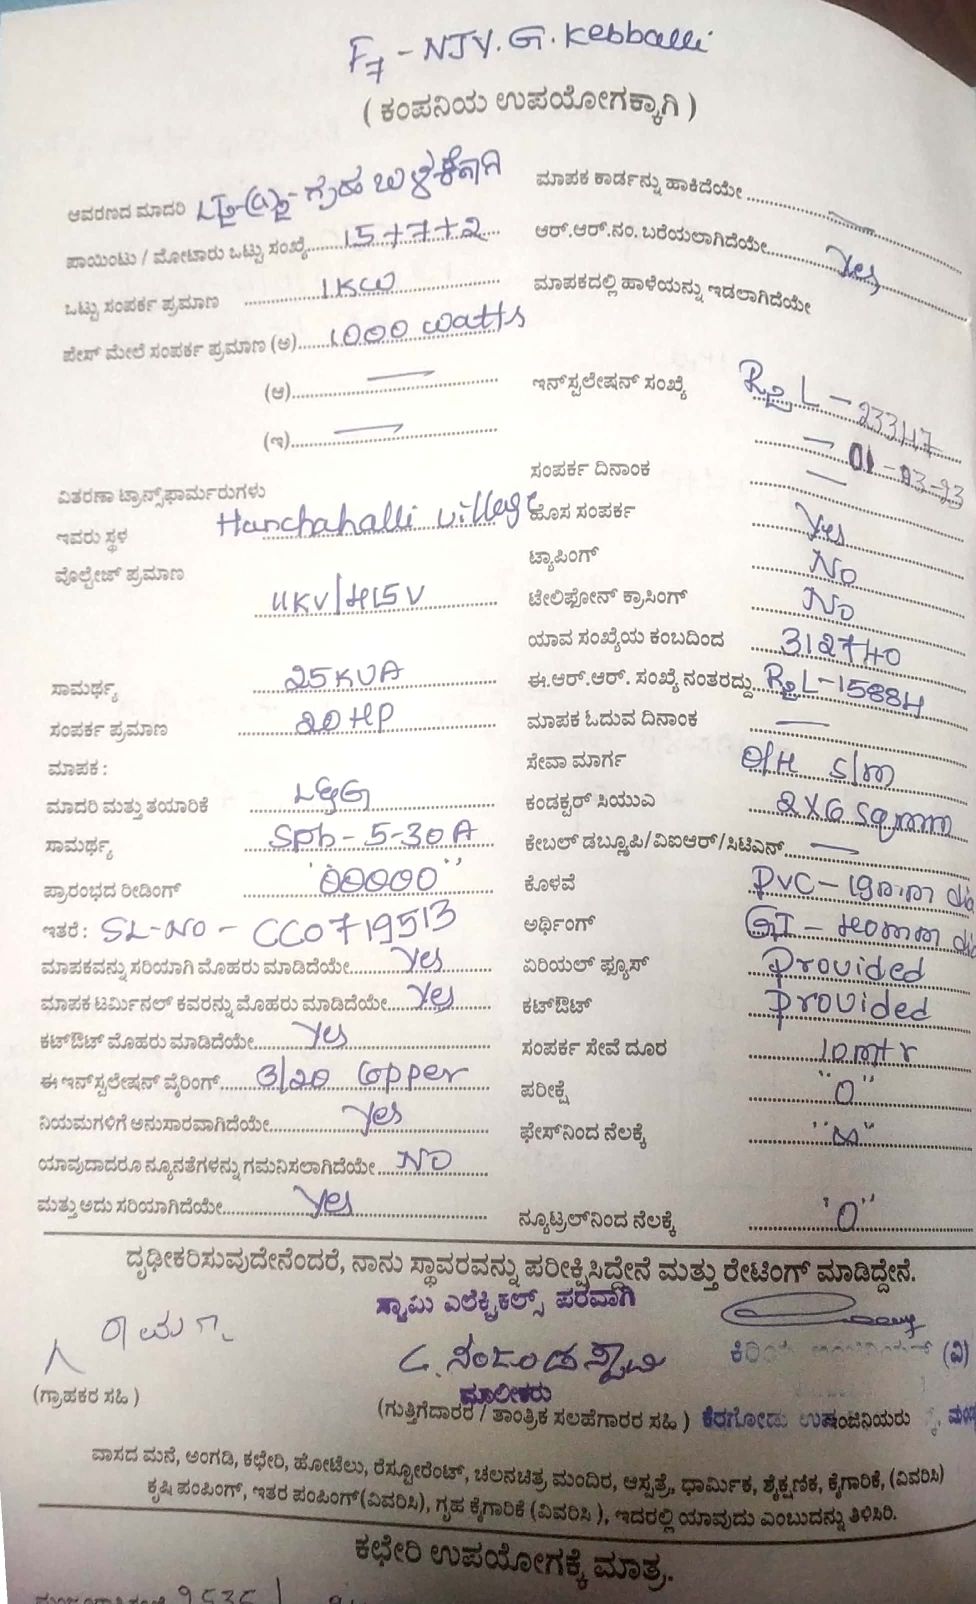 F7 - NJY. G. Kebballi
( ಕಂಪನಿಯ ಉಪಯೋಗಕ್ಕಾಗಿ )
ಆವರಣದ ಮಾದರಿ ಗೃಹ ಬಳಕೆಗಾಗಿ
ಪಾಯಿಂಟು / ಮೋಟಾರು ಒಟ್ಟು ಸಂಖ್ಯೆ 15+7+2
ಒಟ್ಟು ಸಂಪರ್ಕ ಪ್ರಮಾಣ 1KW
ಪೇಸ್ ಮೇಲೆ ಸಂಪರ್ಕ ಪ್ರಮಾಣ (ಅ) 1000 watts
(ಆ)
(ಇ)
ವಿತರಣಾ ಟ್ರಾನ್ಸ್‌ಫಾರ್ಮರುಗಳು
ಇವರು ಸ್ಥಳ Hanchahalli village
ವೊಲ್ಟೇಜ್ ಪ್ರಮಾಣ
11KV/415V
ಸಾಮರ್ಥ್ಯ 25KVA
ಸಂಪರ್ಕ ಪ್ರಮಾಣ 20HP
ಮಾಪಕ :
ಮಾದರಿ ಮತ್ತು ತಯಾರಿಕೆ L&G
ಸಾಮರ್ಥ್ಯ Sph-5-30A
ಪ್ರಾರಂಭದ ರೀಡಿಂಗ್ "00000"
ಇತರೆ : SL-NO - CC0719513
ಮಾಪಕವನ್ನು ಸರಿಯಾಗಿ ಮೊಹರು ಮಾಡಿದೆಯೇ Yes
ಮಾಪಕ ಟರ್ಮಿನಲ್ ಕವರನ್ನು ಮೊಹರು ಮಾಡಿದೆಯೇ Yes
ಕಟ್‌ಔಟ್ ಮೊಹರು ಮಾಡಿದೆಯೇ Yes
ಈ ಇನ್‌ಸ್ಟಲೇಷನ್ ವೈರಿಂಗ್ 3/20 Copper
ನಿಯಮಗಳಿಗೆ ಅನುಸಾರವಾಗಿದೆಯೇ Yes
ಯಾವುದಾದರೂ ನ್ಯೂನತೆಗಳನ್ನು ಗಮನಿಸಲಾಗಿದೆಯೇ NO
ಮತ್ತು ಅದು ಸರಿಯಾಗಿದೆಯೇ Yes
ಮಾಪಕ ಕಾರ್ಡನ್ನು ಹಾಕಿದೆಯೇ
ಆರ್.ಆರ್.ನಂ. ಬರೆಯಲಾಗಿದೆಯೇ Yes
ಮಾಪಕದಲ್ಲಿ ಹಾಳೆಯನ್ನು ಇಡಲಾಗಿದೆಯೇ
ಇನ್‌ಸ್ಟಲೇಷನ್ ಸಂಖ್ಯೆ R2L-23347
ಸಂಪರ್ಕ ದಿನಾಂಕ 01-03-23
ಹೊಸ ಸಂಪರ್ಕ Yes
ಟ್ಯಾಪಿಂಗ್ NO
ಟೇಲಿಫೋನ್ ಕ್ರಾಸಿಂಗ್ NO
ಯಾವ ಸಂಖ್ಯೆಯ ಕಂಬದಿಂದ 312740
ಈ.ಆರ್.ಆರ್. ಸಂಖ್ಯೆ ನಂತರದ್ದು R2L-15884
ಮಾಪಕ ಓದುವ ದಿನಾಂಕ
ಸೇವಾ ಮಾರ್ಗ O/H S/M
ಕಂಡಕ್ಟರ್ ಸಿಯುಎ 2X6 Sqmm
ಕೇಬಲ್ ಡಬ್ಲೂಪಿ/ವಿಐಆರ್/ಸಿಟಿಎಸ್
ಕೊಳವೆ PVC - dia
ಅರ್ಥಿಂಗ್ GI - 40mm dia
ಏರಿಯಲ್ ಫ್ಯೂಸ್ Provided
ಕಟ್‌ಔಟ್ Provided
ಸಂಪರ್ಕ ಸೇವೆ ದೂರ 10mtr
ಪರೀಕ್ಷೆ "0"
ಫೇಸ್‌ನಿಂದ ನೆಲಕ್ಕೆ "∞"
ನ್ಯೂಟ್ರಲ್‌ನಿಂದ ನೆಲಕ್ಕೆ "0"
ದೃಢೀಕರಿಸುವುದೇನೆಂದರೆ, ನಾನು ಸ್ಥಾವರವನ್ನು ಪರೀಕ್ಷಿಸಿದ್ದೇನೆ ಮತ್ತು ರೇಟಿಂಗ್ ಮಾಡಿದ್ದೇನೆ.
ಸ್ವಾಮಿ ಎಲೆಕ್ಟ್ರಿಕಲ್ಸ್ ಪರವಾಗಿ
ಕಿರಿಯ (ವಿ)
ಮಾಲೀಕರು
(ಗ್ರಾಹಕರ ಸಹಿ )
(ಗುತ್ತಿಗೆದಾರರ / ತಾಂತ್ರಿಕ ಸಲಹೆಗಾರರ ಸಹಿ ) ಕೆರಗೋಡು
ವಾಸದ ಮನೆ, ಅಂಗಡಿ, ಕಛೇರಿ, ಹೋಟೆಲು, ರೆಸ್ಟೋರೆಂಟ್, ಚಲನಚಿತ್ರ ಮಂದಿರ, ಆಸ್ಪತ್ರೆ, ಧಾರ್ಮಿಕ, ಶೈಕ್ಷಣಿಕ, ಕೈಗಾರಿಕೆ, (ವಿವರಿಸಿ)
ಕೃಷಿ ಪಂಪಿಂಗ್, ಇತರ ಪಂಪಿಂಗ್ (ವಿವರಿಸಿ), ಗೃಹ ಕೈಗಾರಿಕೆ (ವಿವರಿಸಿ ), ಇದರಲ್ಲಿ ಯಾವುದು ಎಂಬುದನ್ನು ತಿಳಿಸಿರಿ.
ಕಛೇರಿ ಉಪಯೋಗಕ್ಕೆ ಮಾತ್ರ.